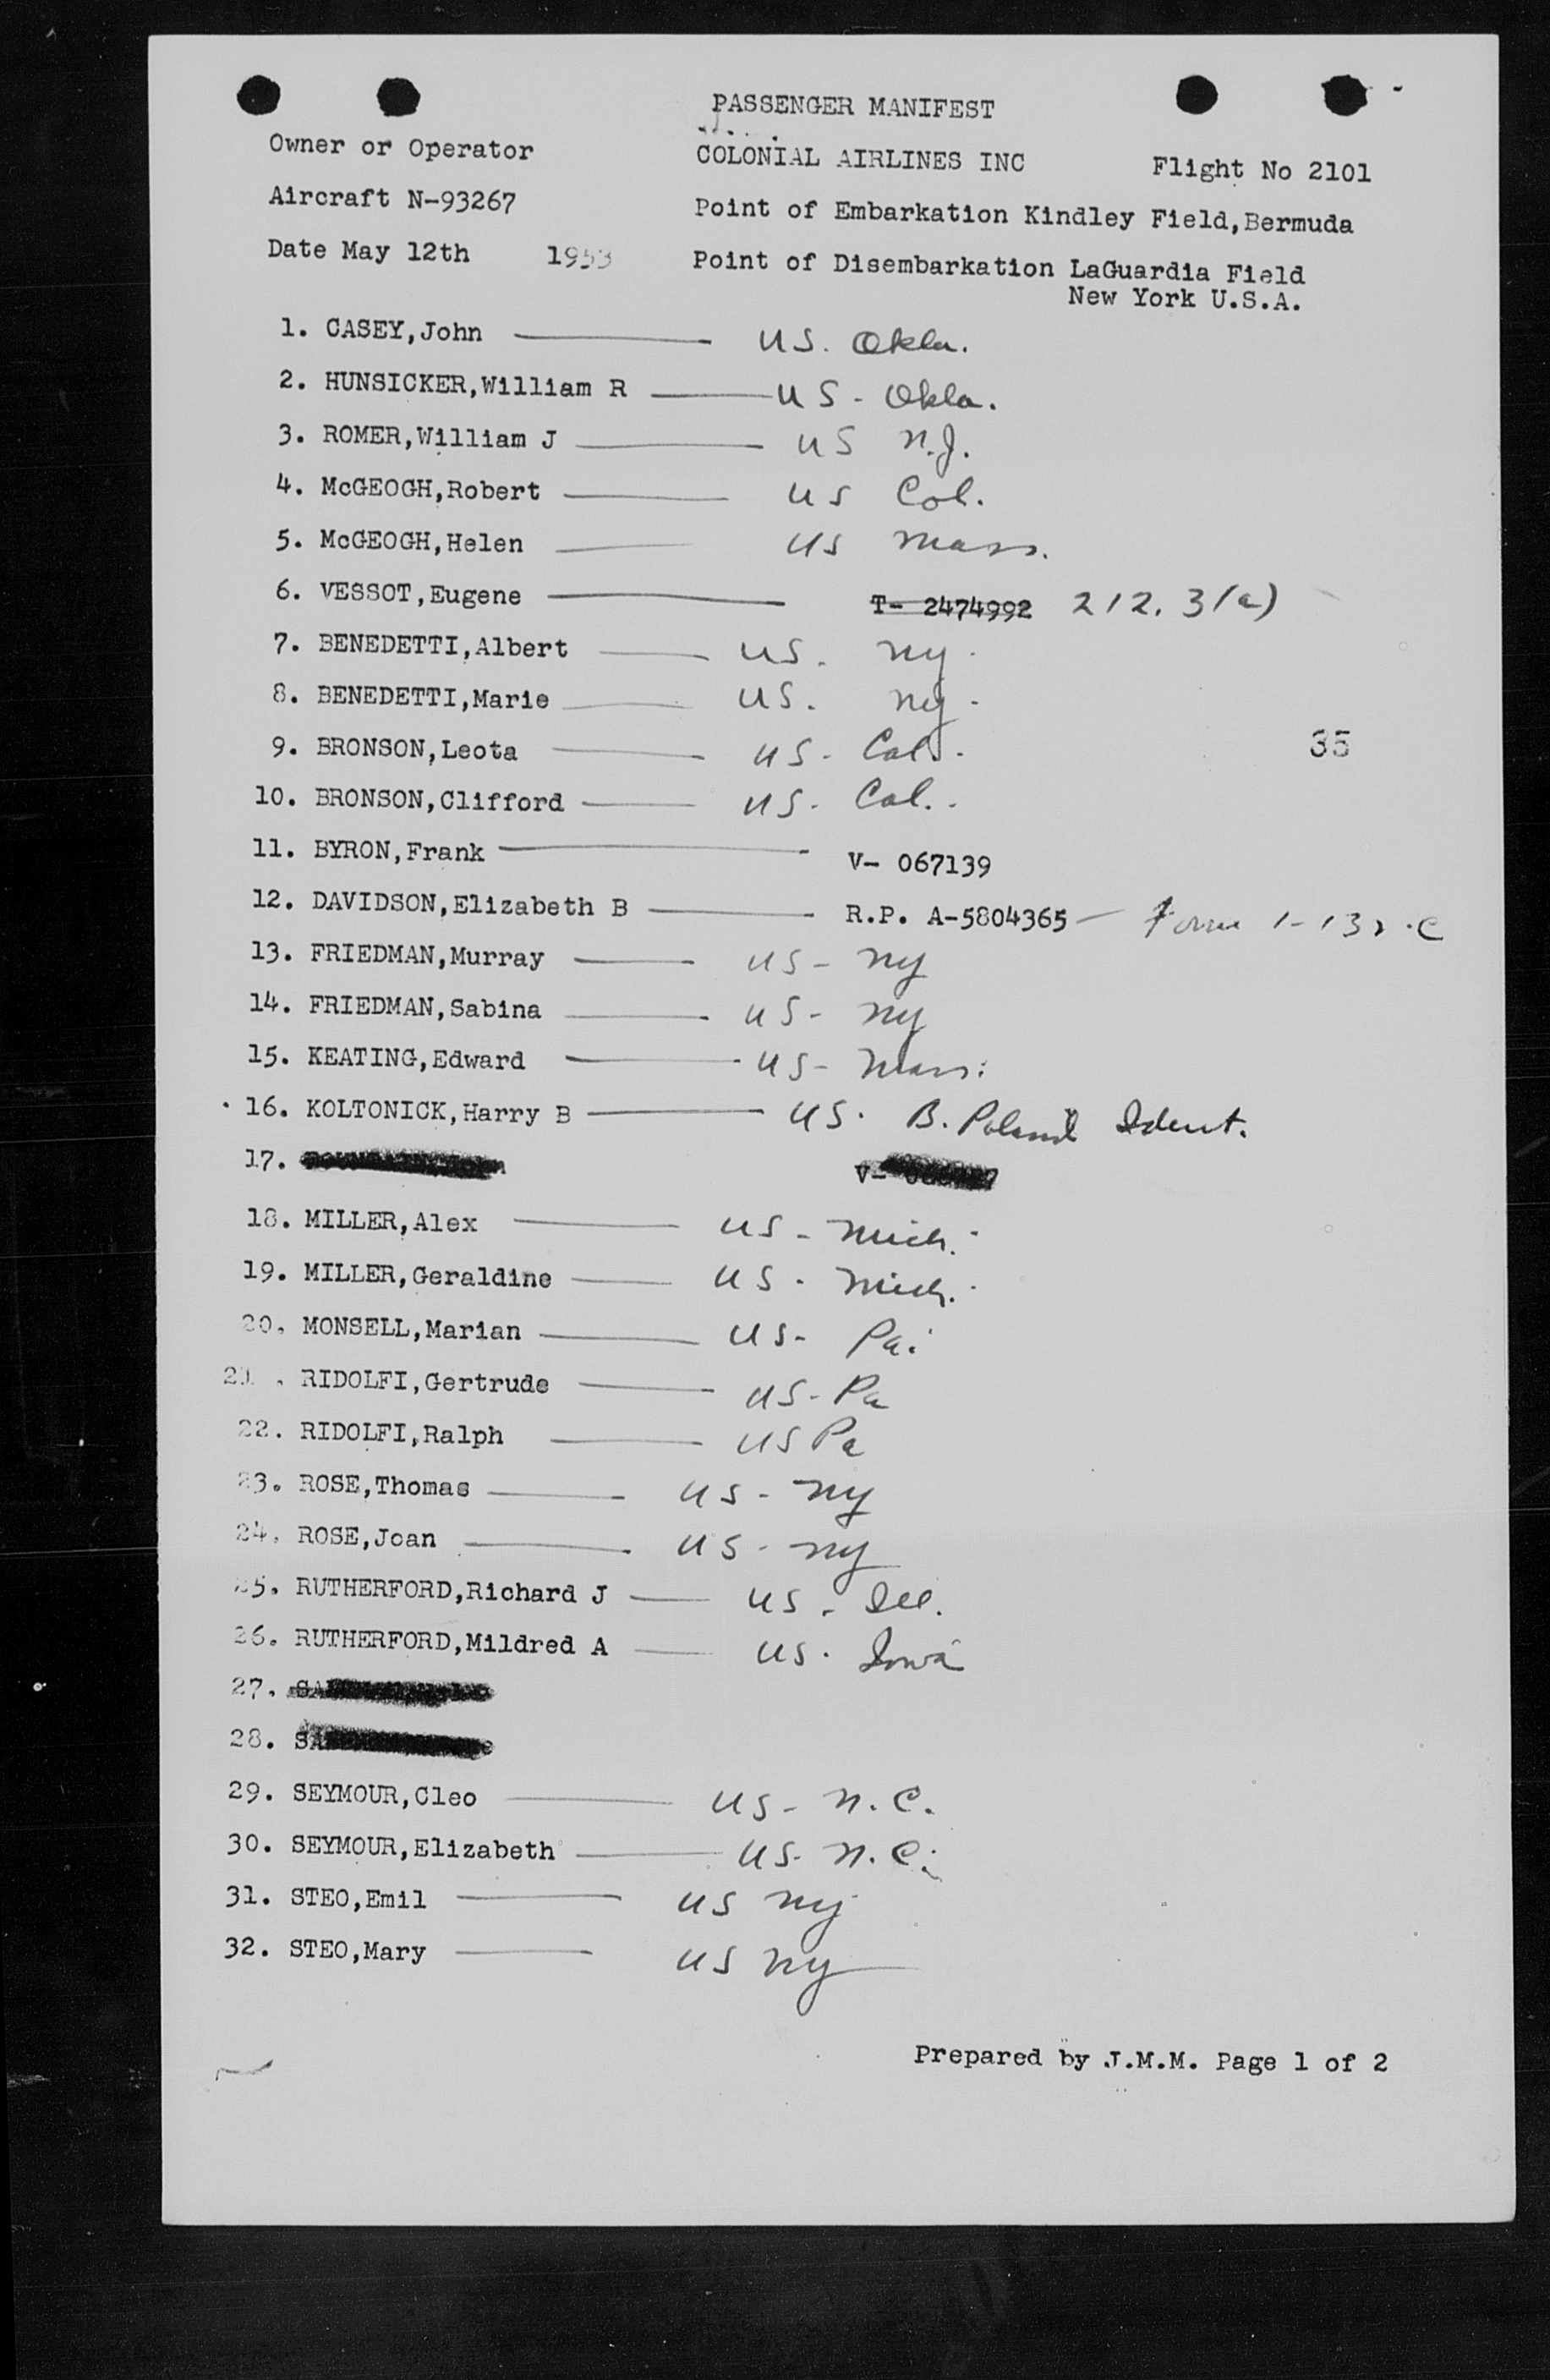 PASSENGER MANIFEST
Owner or Operator COLONIAL AIRLINES INC Flight No 2101
Aircraft N-93267 Point of Embarkation Kindley Field,Bermuda
Date May 12th 1953 Point of Disembarkation LaGuardia Field
New York U.S.A.
1. CASEY,John US. Okla.
2. HUNSICKER,William R US - Okla.
3. ROMER,William J US N.J.
4. McGEOGH,Robert US Col.
5. McGEOGH,Helen US Mass.
6. VESSOT,Eugene T- 2474992 212.3(a)
7. BENEDETTI,Albert US. NY.
8. BENEDETTI,Marie US. NY.
9. BRONSON,Leota US - Cal.
35
10. BRONSON,Clifford US - Cal.
11. BYRON,Frank V- 067139
12. DAVIDSON,Elizabeth B R.P. A-5804365 - Form I-132.C
13. FRIEDMAN,Murray US - NY
14. FRIEDMAN,Sabina US - NY
15. KEATING,Edward US - Mass.
16. KOLTONICK,Harry B US. B. Poland Ident.
17. V-
18. MILLER,Alex US - Mich.
19. MILLER,Geraldine US - Mich.
20. MONSELL,Marian US - Pa.
21. RIDOLFI,Gertrude US - Pa
22. RIDOLFI,Ralph US Pa
23. ROSE,Thomas US - NY
24. ROSE,Joan US - NY
25. RUTHERFORD,Richard J US - Ill.
26. RUTHERFORD,Mildred A US. Iowa
27.
28.
29. SEYMOUR,Cleo US - N.C.
30. SEYMOUR,Elizabeth US - N.C.
31. STEO,Emil US NY
32. STEO,Mary US NY
Prepared by J.M.M. Page 1 of 2